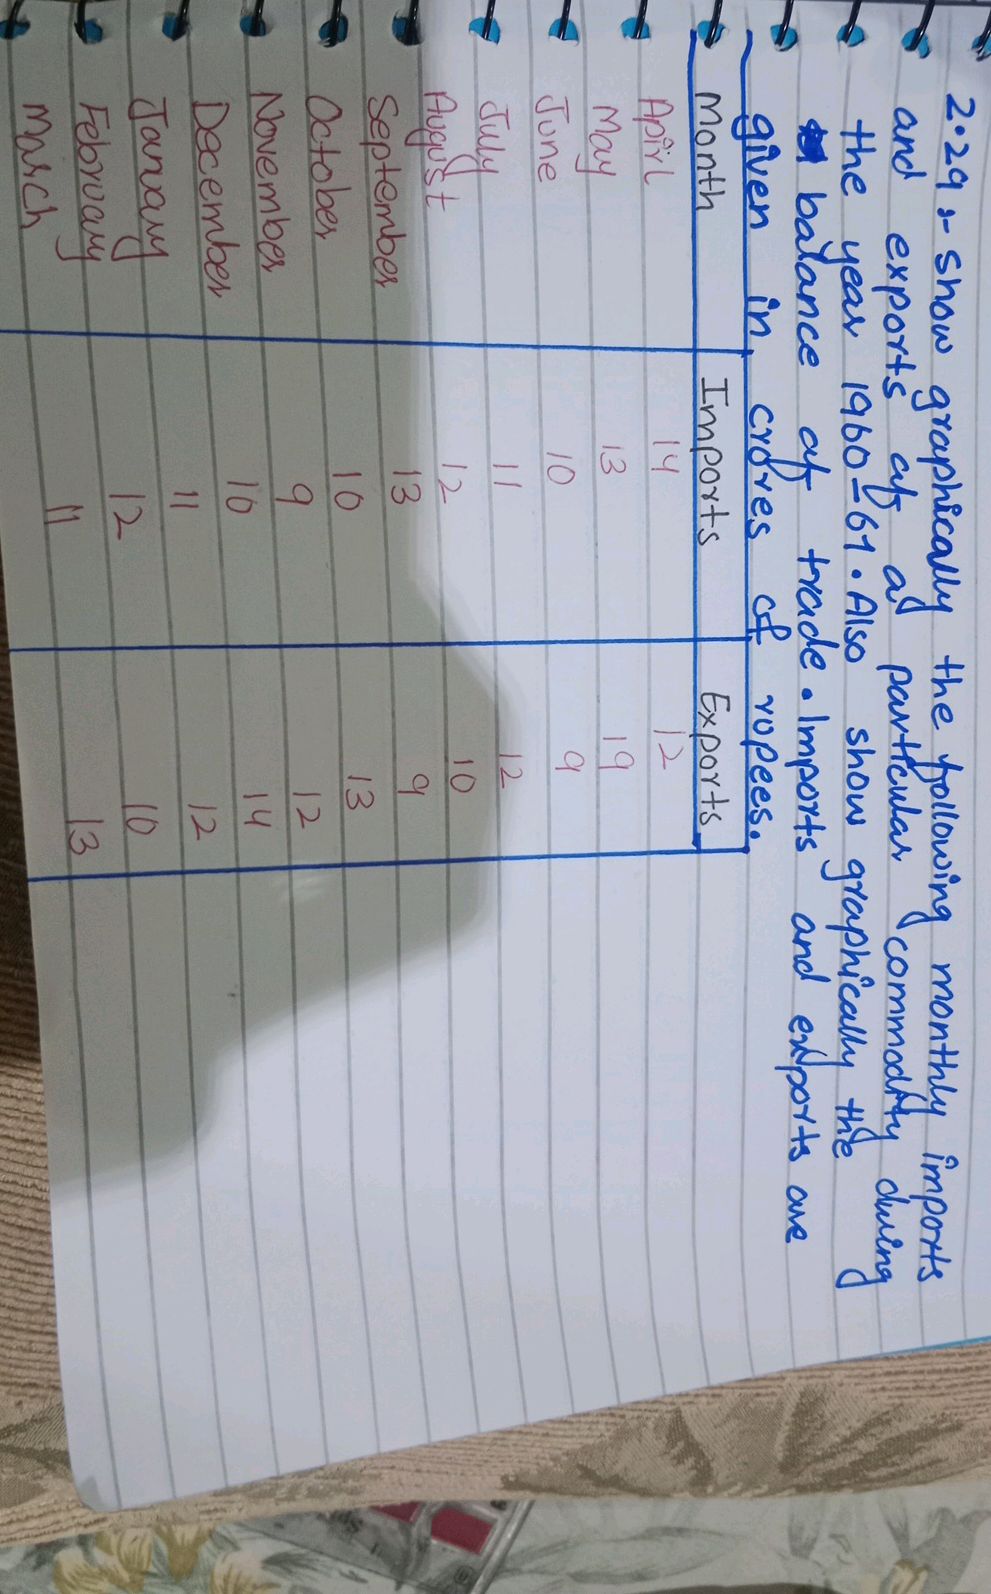 2.29:- Show graphically the following monthly imports
and exports of a particular commodity during
the year 1960-61. Also show graphically the
balance of trade. Imports and exports are
given in crores of rupees.
Month Imports Exports
Apirl 14 12
May 13 19
June 10 9
July 11 12
August 12 10
September 13 9
October 10 13
November 9 12
December 10 14
January 11 12
February 12 10
March 11 13